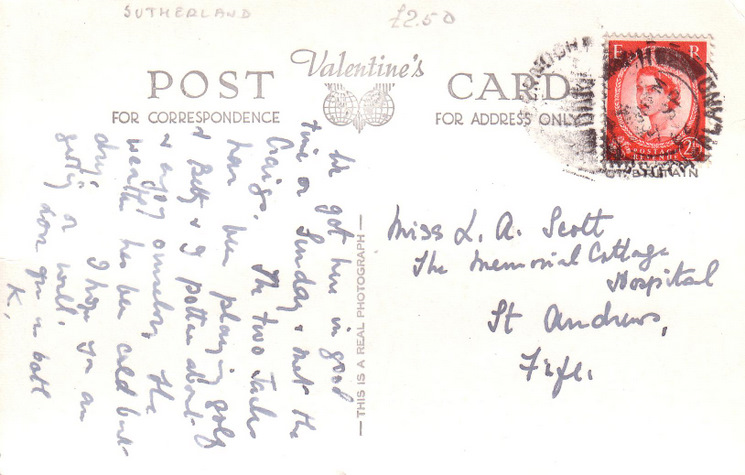 SUTHERLAND
£2.50
POST
Valentine's
CARD
FOR CORRESPONDENCE
FOR ADDRESS ONLY
E R
POSTAGE
REVENUE
2½
GT. BRITAIN
We got here in good
time on Sunday & met the
Craigs. The two Jacks
have been playing golf
& Betty & I potter about
& enjoy ourselves. The
weather has been cold but
dry. I hope you are
getting on well.
Love from us both
K.
— THIS IS A REAL PHOTOGRAPH —
Miss L. A. Scott
The Memorial Cottage
Hospital
St Andrews,
Fife.